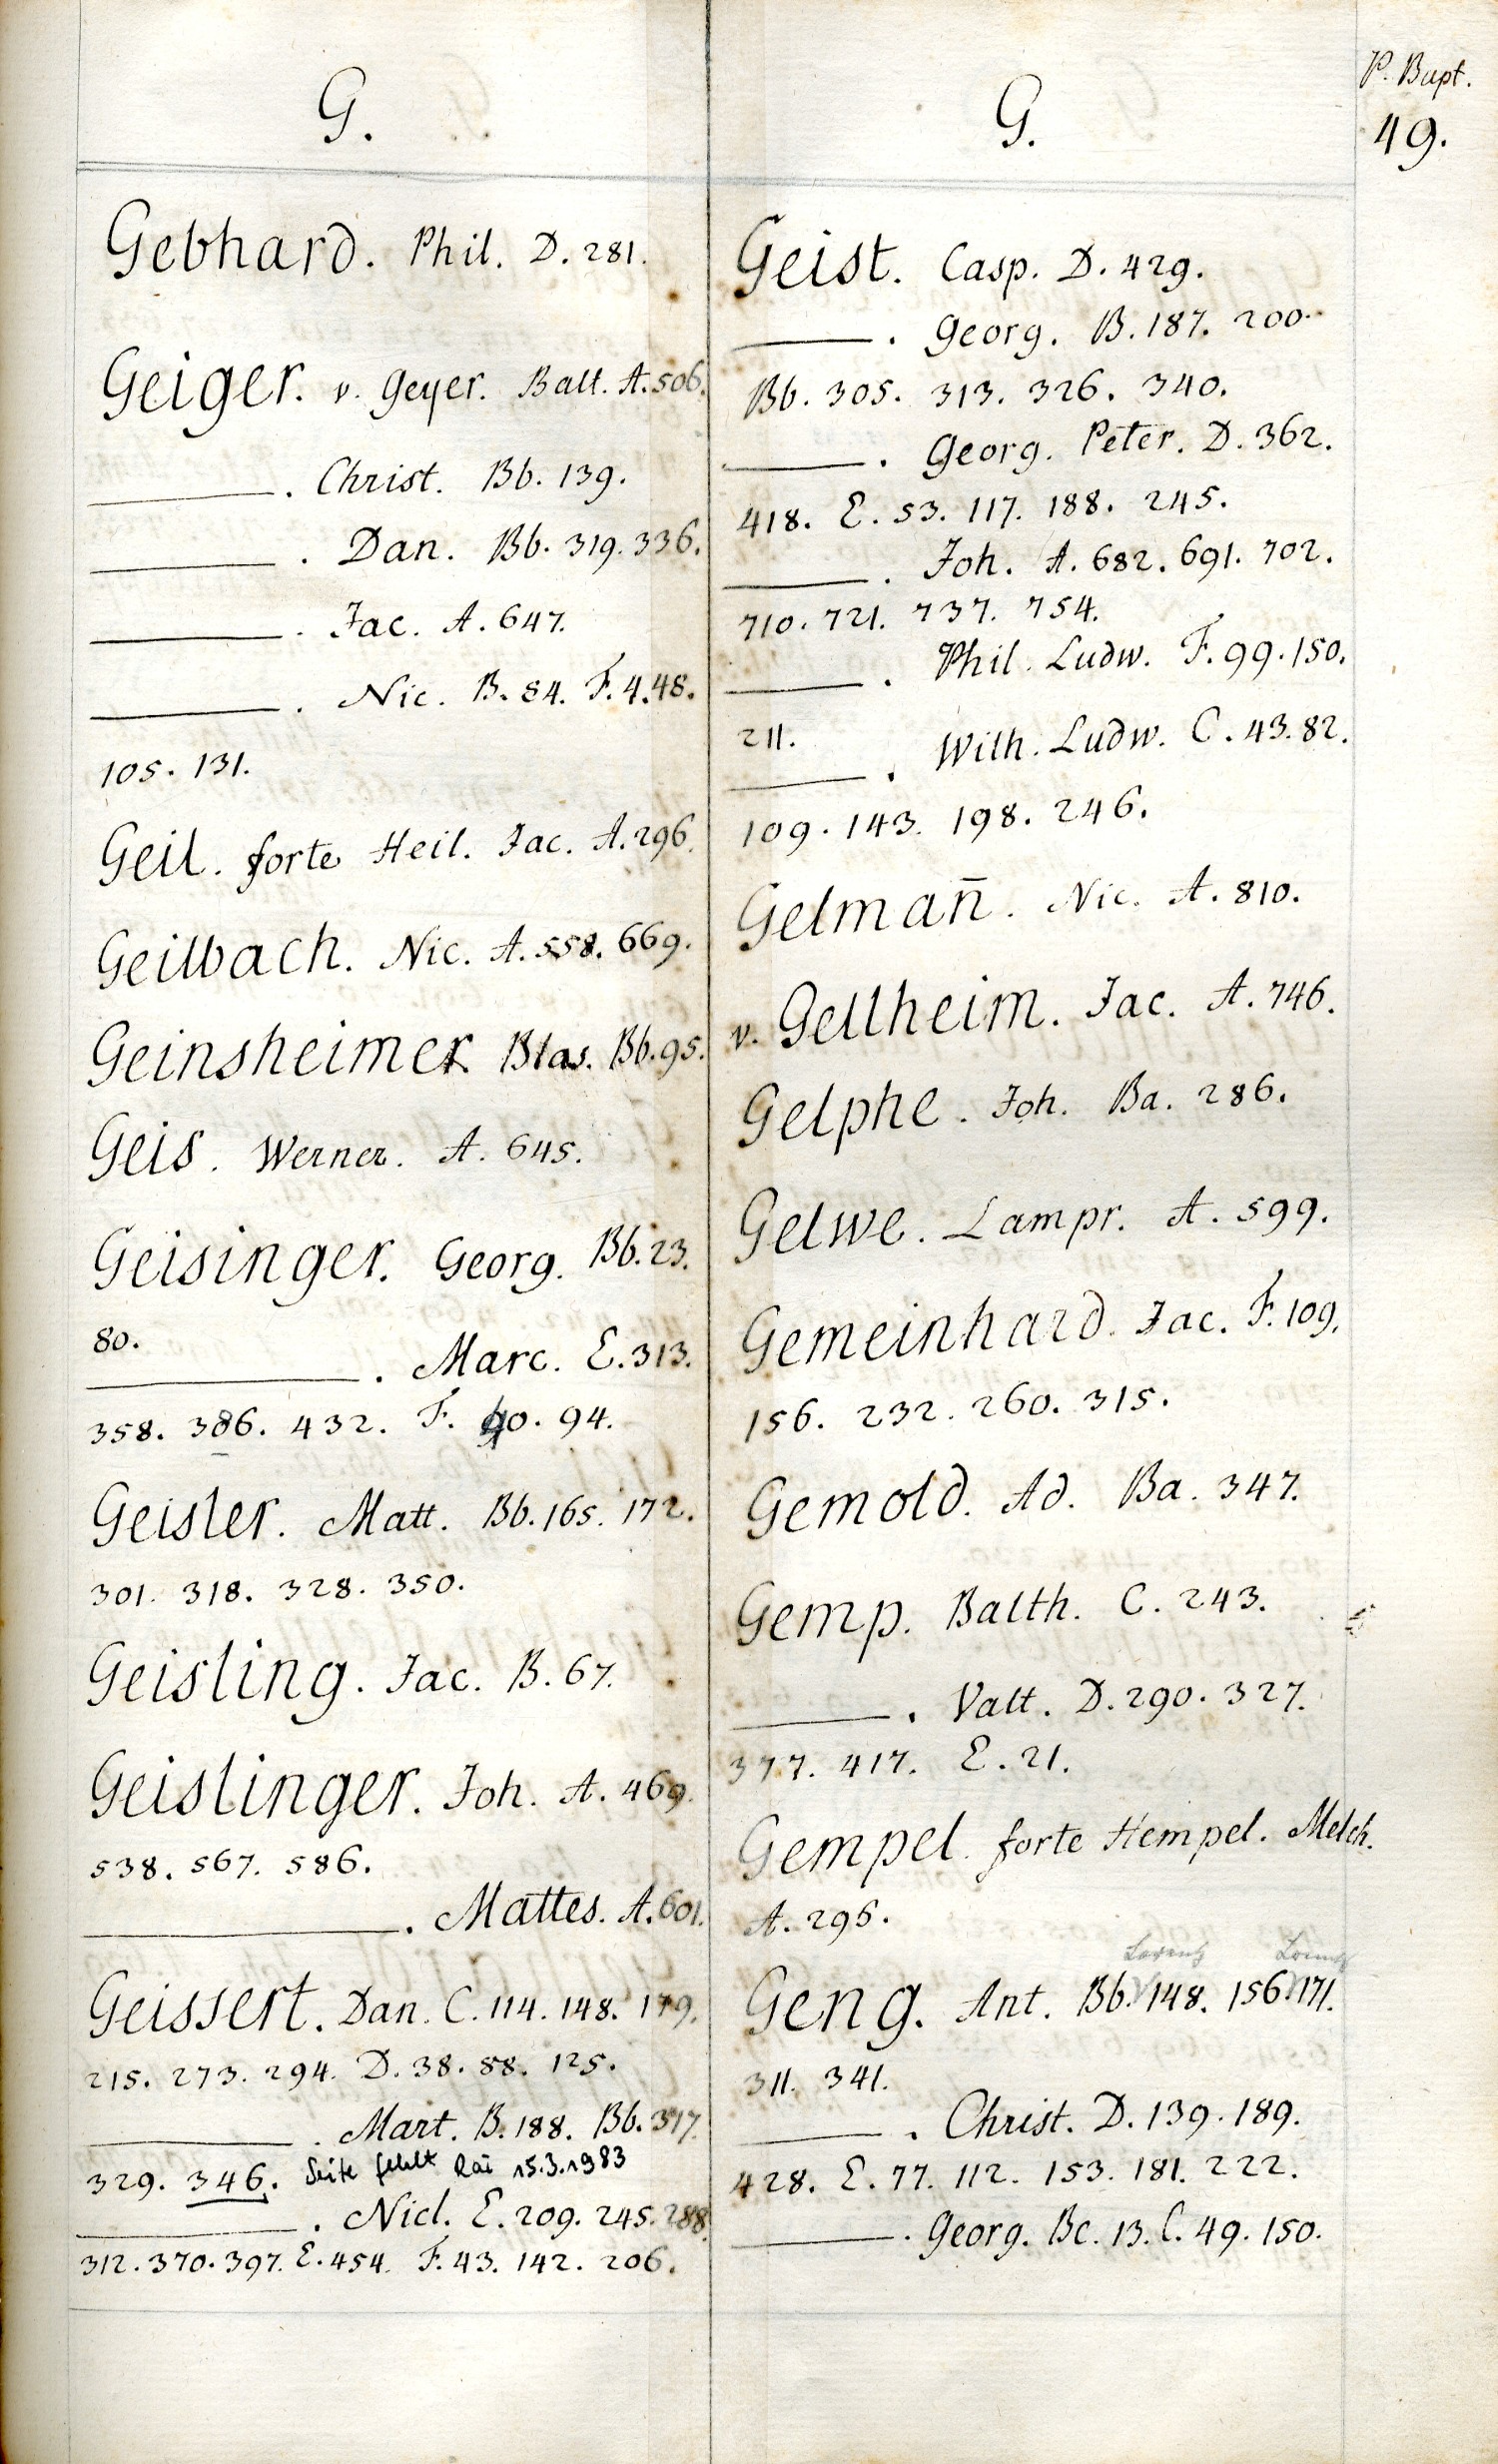 P. Bapt.
49.
G.
Gebhard. Phil. D. 281.
Geiger. v. Geyer. Balt. A. 506.
———. Christ. Bb. 139.
———. Dan. Bb. 319. 336.
———. Jac. A. 647.
———. Nic. B. 84. F. 4. 48.
105. 131.
Geil. forte Heil. Jac. A. 296.
Geilbach. Nic. A. 558. 669.
Geinsheimer Blas. Bb. 95.
Geis. Werner. A. 645.
Geisinger. Georg. Bb. 23.
80.
———. Marc. E. 313.
358. 386. 432. F. 40. 94.
Geisler. Matt. Bb. 165. 172.
301. 318. 328. 350.
Geisling. Jac. B. 67.
Geislinger. Joh. A. 469.
538. 567. 586.
———. Mattes. A. 601.
Geissert. Dan. C. 114. 148. 179.
215. 273. 294. D. 38. 88. 125.
———. Mart. B. 188. Bb. 317.
329. 346. Seite fehlt Rai 15.3.1983
———. Nicl. E. 209. 245. 288.
312. 370. 397. E. 454. F. 43. 142. 206.
G.
Geist. Casp. D. 429.
———. Georg. B. 187. 200.
Bb. 305. 313. 326. 340.
———. Georg. Peter. D. 362.
418. E. 53. 117. 188. 245.
———. Joh. A. 682. 691. 702.
710. 721. 737. 754.
———. Phil. Ludw. F. 99. 150.
211.
———. Wilh. Ludw. C. 43. 82.
109. 143. 198. 246.
Gelmañ. Nic. A. 810.
v. Gellheim. Jac. A. 746.
Gelphe. Joh. Ba. 286.
Gelwe. Lampr. A. 599.
Gemeinhard. Jac. F. 109.
156. 232. 260. 315.
Gemold. Ad. Ba. 347.
Gemp. Balth. C. 243.
———. Valt. D. 290. 327.
377. 417. E. 21.
Gempel. forte Hempel. Melch.
A. 295.
Lorentz Lorentz
Geng. Ant. Bb. 148. 156. 171.
311. 341.
———. Christ. D. 139. 189.
428. E. 77. 112. 153. 181. 222.
———. Georg. Bc. 13. C. 49. 150.